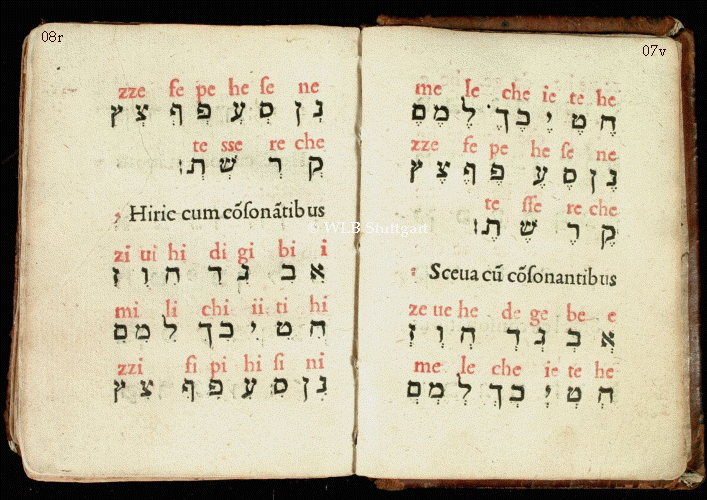 07v
me le che ie te he
חֶ טֶ יֶ כֶךֶ לֶ מֶםֶ
zze fe pe he ſe ne
נֶןֶ סֶ עֶ פֶףֶ צֶץֶ
te ſſe re che
קֶ רֶ שֶׁ תֶ׃
Sceua cũ cõſonantibus
ze ue he de ge be e
אְ בְ גְ דְ הְ וְ זְ
me le che ie te he
חְ טְ יְ כְךְ לְ מְםְ
08r
zze fe pe he ſe ne
נְןְ סְ עְ פְףְ צְץְ
te sse re che
קְ רְ שְׁ תְ׃
Hiric cum cõſonãtibus
zi ui hi di gi bi i
אִ בִ גִ דִ הִ וִ זִ
mi li chi ii ti hi
חִ טִ יִ כִךִ לִ מִםִ
zzi fi pi hi ſi ni
נִןִ סִ עִ פִףִ צִץִ
© WLB Stuttgart